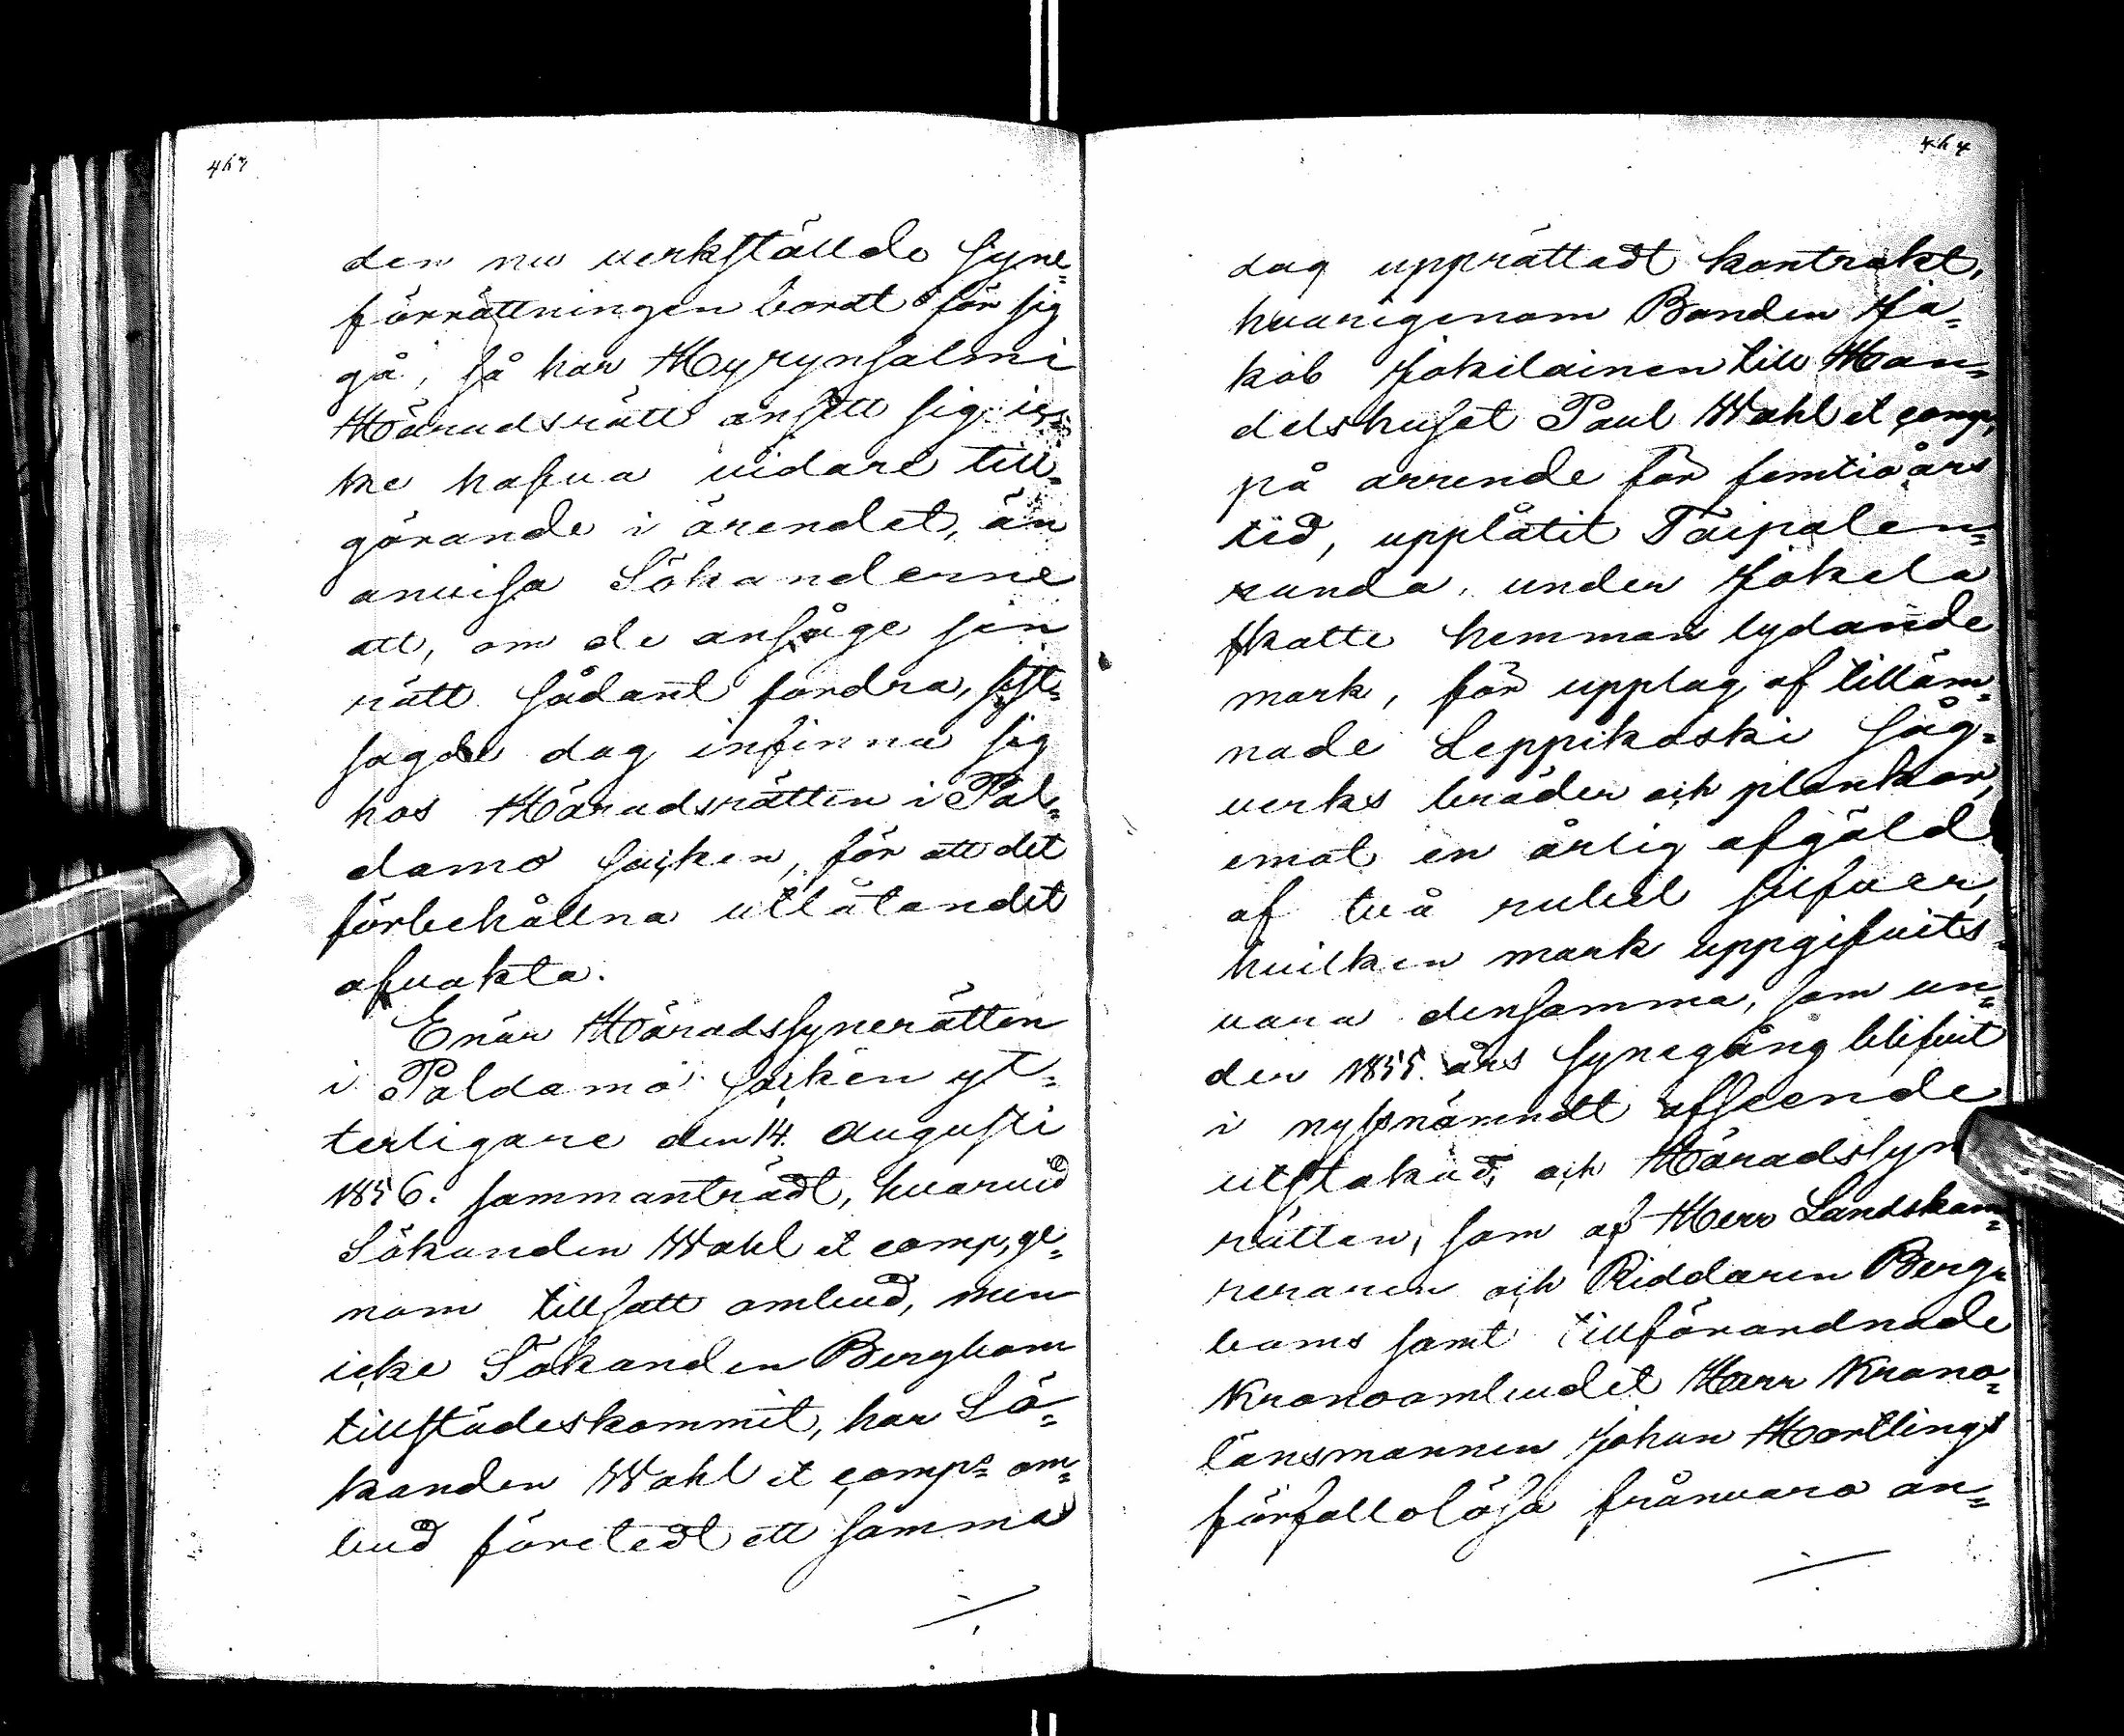 463
den nu verkställde syne-
förrättningen bordt för sig
gå, så har Hyrynsalmi
Häradsrätt ansett sig ic-
ke hafva vidare till-
görande i ärendet, än
anvisa Sökanderne
att, om de ansåge sin
rätt sådant fordra, sist-
sagde dag infinna sig
hos Häradsrätten i Pal-
damo Socken, för att det
förbehållna utlåtandet
afvakta.
Enär Häradssynerätten
i Paldamo Socken yt-
terligare den 14. Augusti
1856. sammanträdt, hvarvid
Sökanden Wahl et comp, ge-
nom tillsatt ombud, men
icke Sökanden Bergbom
tillstädeskommit, har Sö-
kanden Wahl et comps om-
bud företedt ett samma
464
dag upprättadt kontrakt,
hvarigenom Bonden Ja-
kob Jokelainen till Han-
delshuset Paul Wahl et comp,
på arrende för femtio års
tid, upplåtit Taipalen-
randa, under Jokela
skatte hemman lydande
mark, för upplag af tilläm-
nade Leppikoski Såg-
verks bräder och plankor,
emot en årlig afgäld
af två rubel silfver,
hvilken mark uppgifvits
vara densamma, som un-
der 1855. års Synegång blifvit
i nyssnämndt afseende
utstakad, och Häradssyn
rätten, som af Herr Landskam-
reraren och Riddaren Berg-
boms samt tillförordnade
Kronoombudet Herr Krono-
länsmannen Johan Hortlings
förfallolösa frånvaro an-